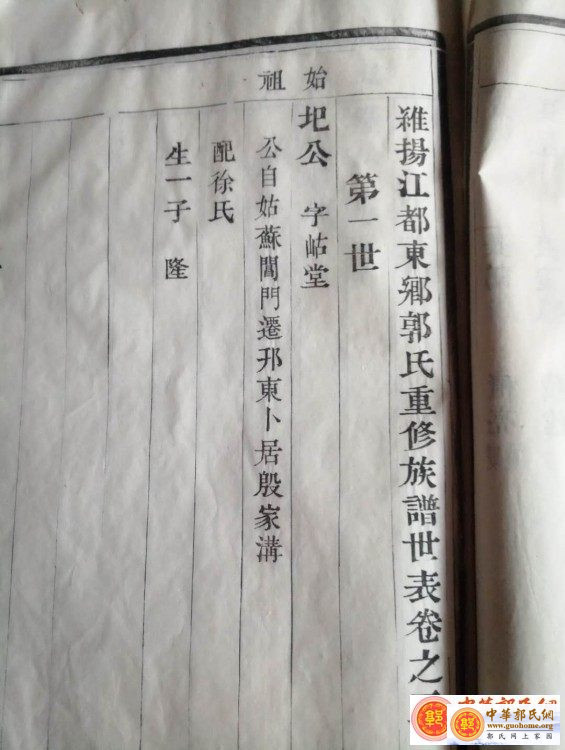 維揚江都東鄉郭氏重修族譜世表卷之
第一世
始祖
圯公 字岵堂
公自姑蘇閶門遷邗東卜居殷家溝
配徐氏
生一子 隆
中華郭氏網
www.guohome.org
郭氏網上家園